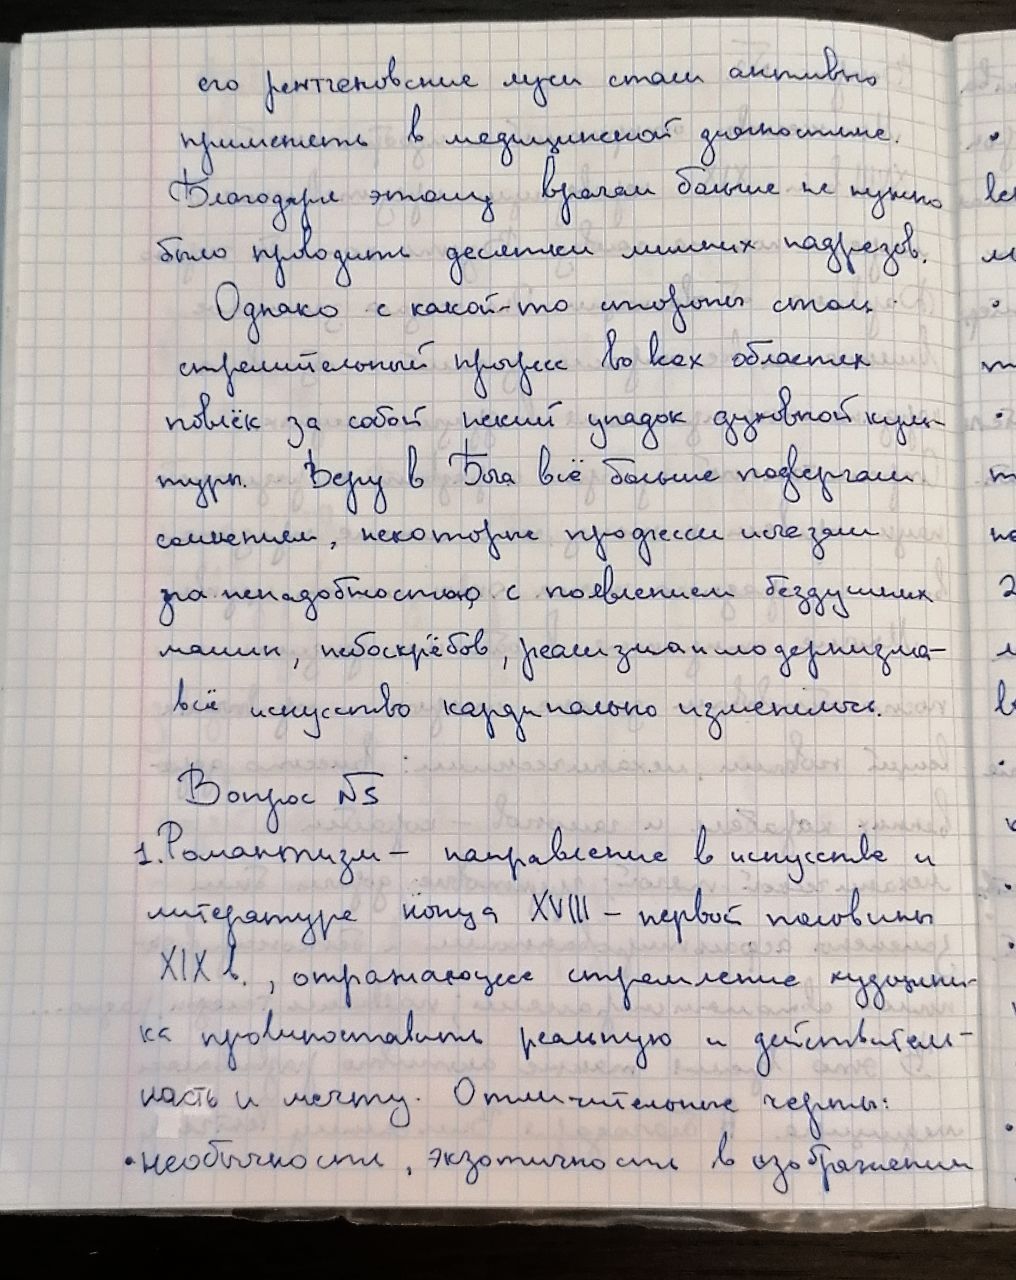 его рентгеновские лучи стали активно
применять в медицинской диагностике.
Благодаря этому врачам больше не нужно
было проводить десятки лишних надрезов.
Однако с какой-то стороны столь
стремительный прогресс во всех областях
повлёк за собой некий упадок духовной куль-
туры. Веру в Бога всё больше подвергали
сомнениям, некоторые профессии исчезали
за ненадобностью с появлением бездушных
машин, небоскрёбов, реализма и модернизма-
всё искусство кардинально изменилось.
Вопрос №5
1. Романтизм - направление в искусстве и
литературе конца XVIII - первой половины
XIX в., отражающее стремление художни-
ка противопоставить реальную и действитель-
ность и мечту. Отличительные черты:
• необычность, экзотичность в изображении